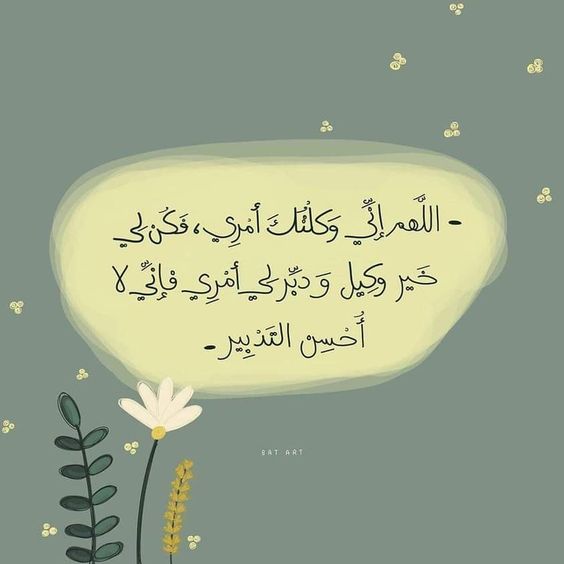 - اللَّهم إنِّي وَكلْتُكَ أمْرِي، فَكُن لي
خَير وكِيل وَ دبِّر لي أمْرِي فإنِّي لا
أُحْسِن التَدْبِير -
BAT ART